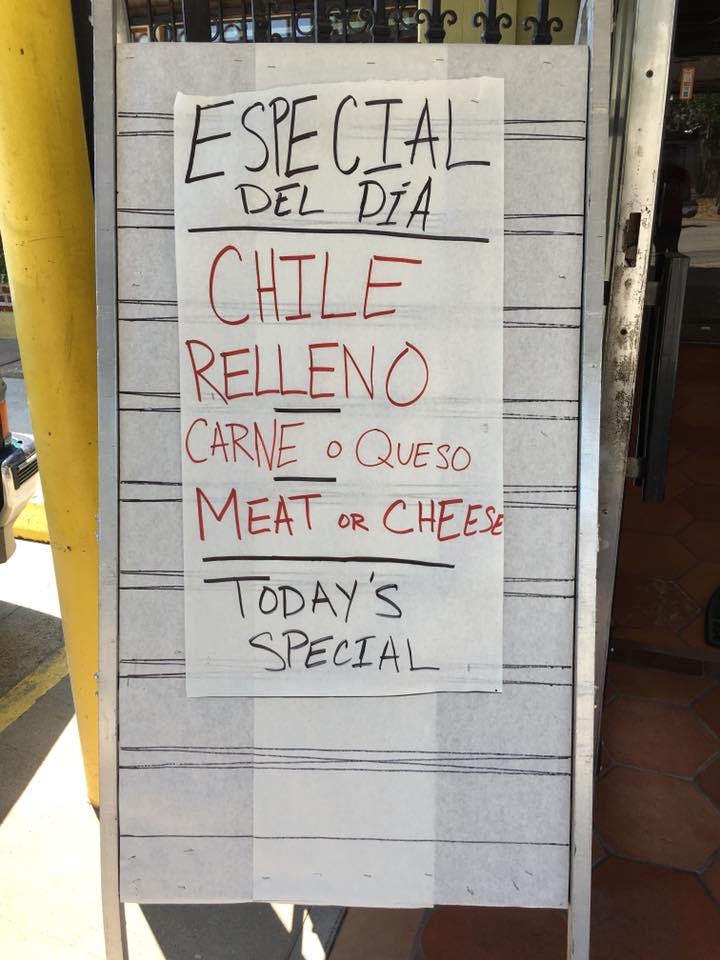 ESPECIAL
DEL DÍA
CHILE
RELLENO
CARNE O QUESO
MEAT OR CHEESE
TODAY'S
SPECIAL